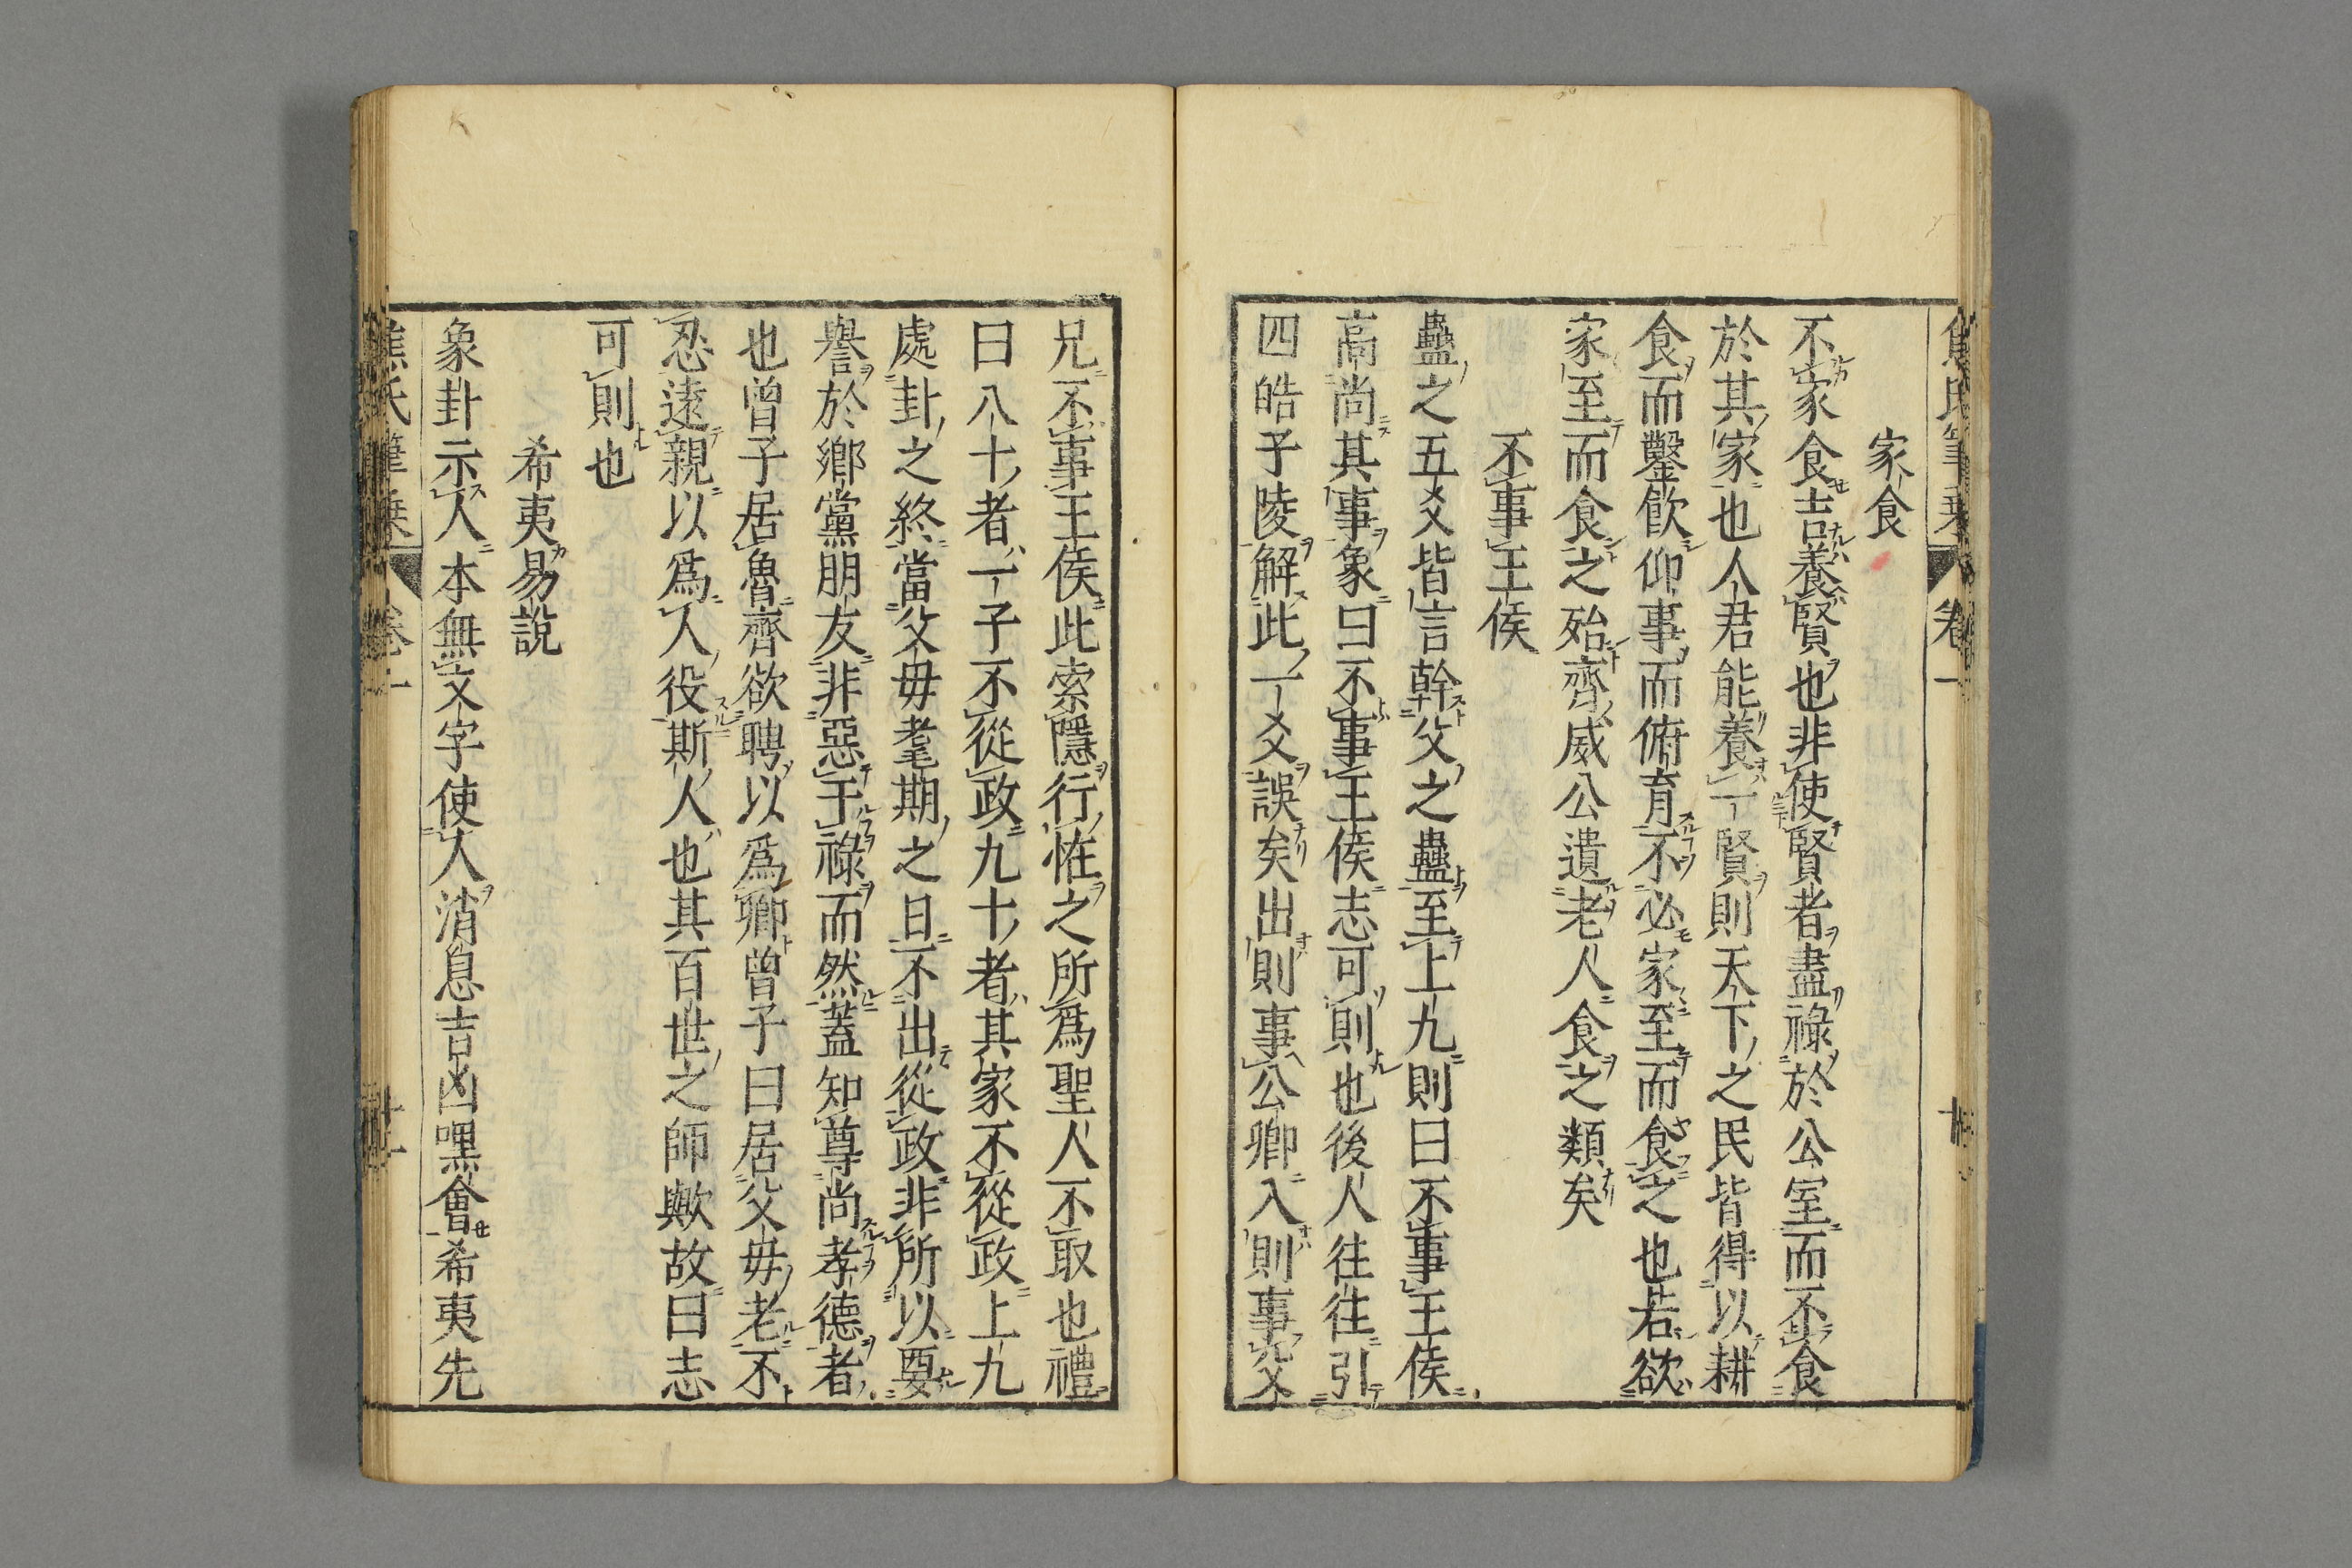 家食
不家食吉養賢也非使賢者盡祿於公室而不食
於其家也人君能養一賢則天下之民皆得以耕
食而鑿飲仰事而俯育不必家至而食之也若欲
家至而食之殆齊威公遺老人食之類矣
不事王侯
蠱之五爻皆言幹父之蠱至上九則曰不事王侯
高尚其事象曰不事王侯志可則也後人往往引
四皓子陵解此一爻誤矣出則事公卿入則事父
兄不事王侯此索隱行恠之所爲聖人不取也禮
曰八十者一子不從政九十者其家不從政上九
處卦之終當父毋耄期之日不出從政非所以要
譽於鄉黨朋友非惡于祿而然蓋知尊尚孝德者
也曾子居魯齊欲聘以爲卿曾子曰居父毋老不
忍遠親以爲人役斯人也其百世之師歟故曰志
可則也
希夷易說
象卦示人本無文字使人消息吉凶嘿會希夷先
焦氏筆乗 卷一